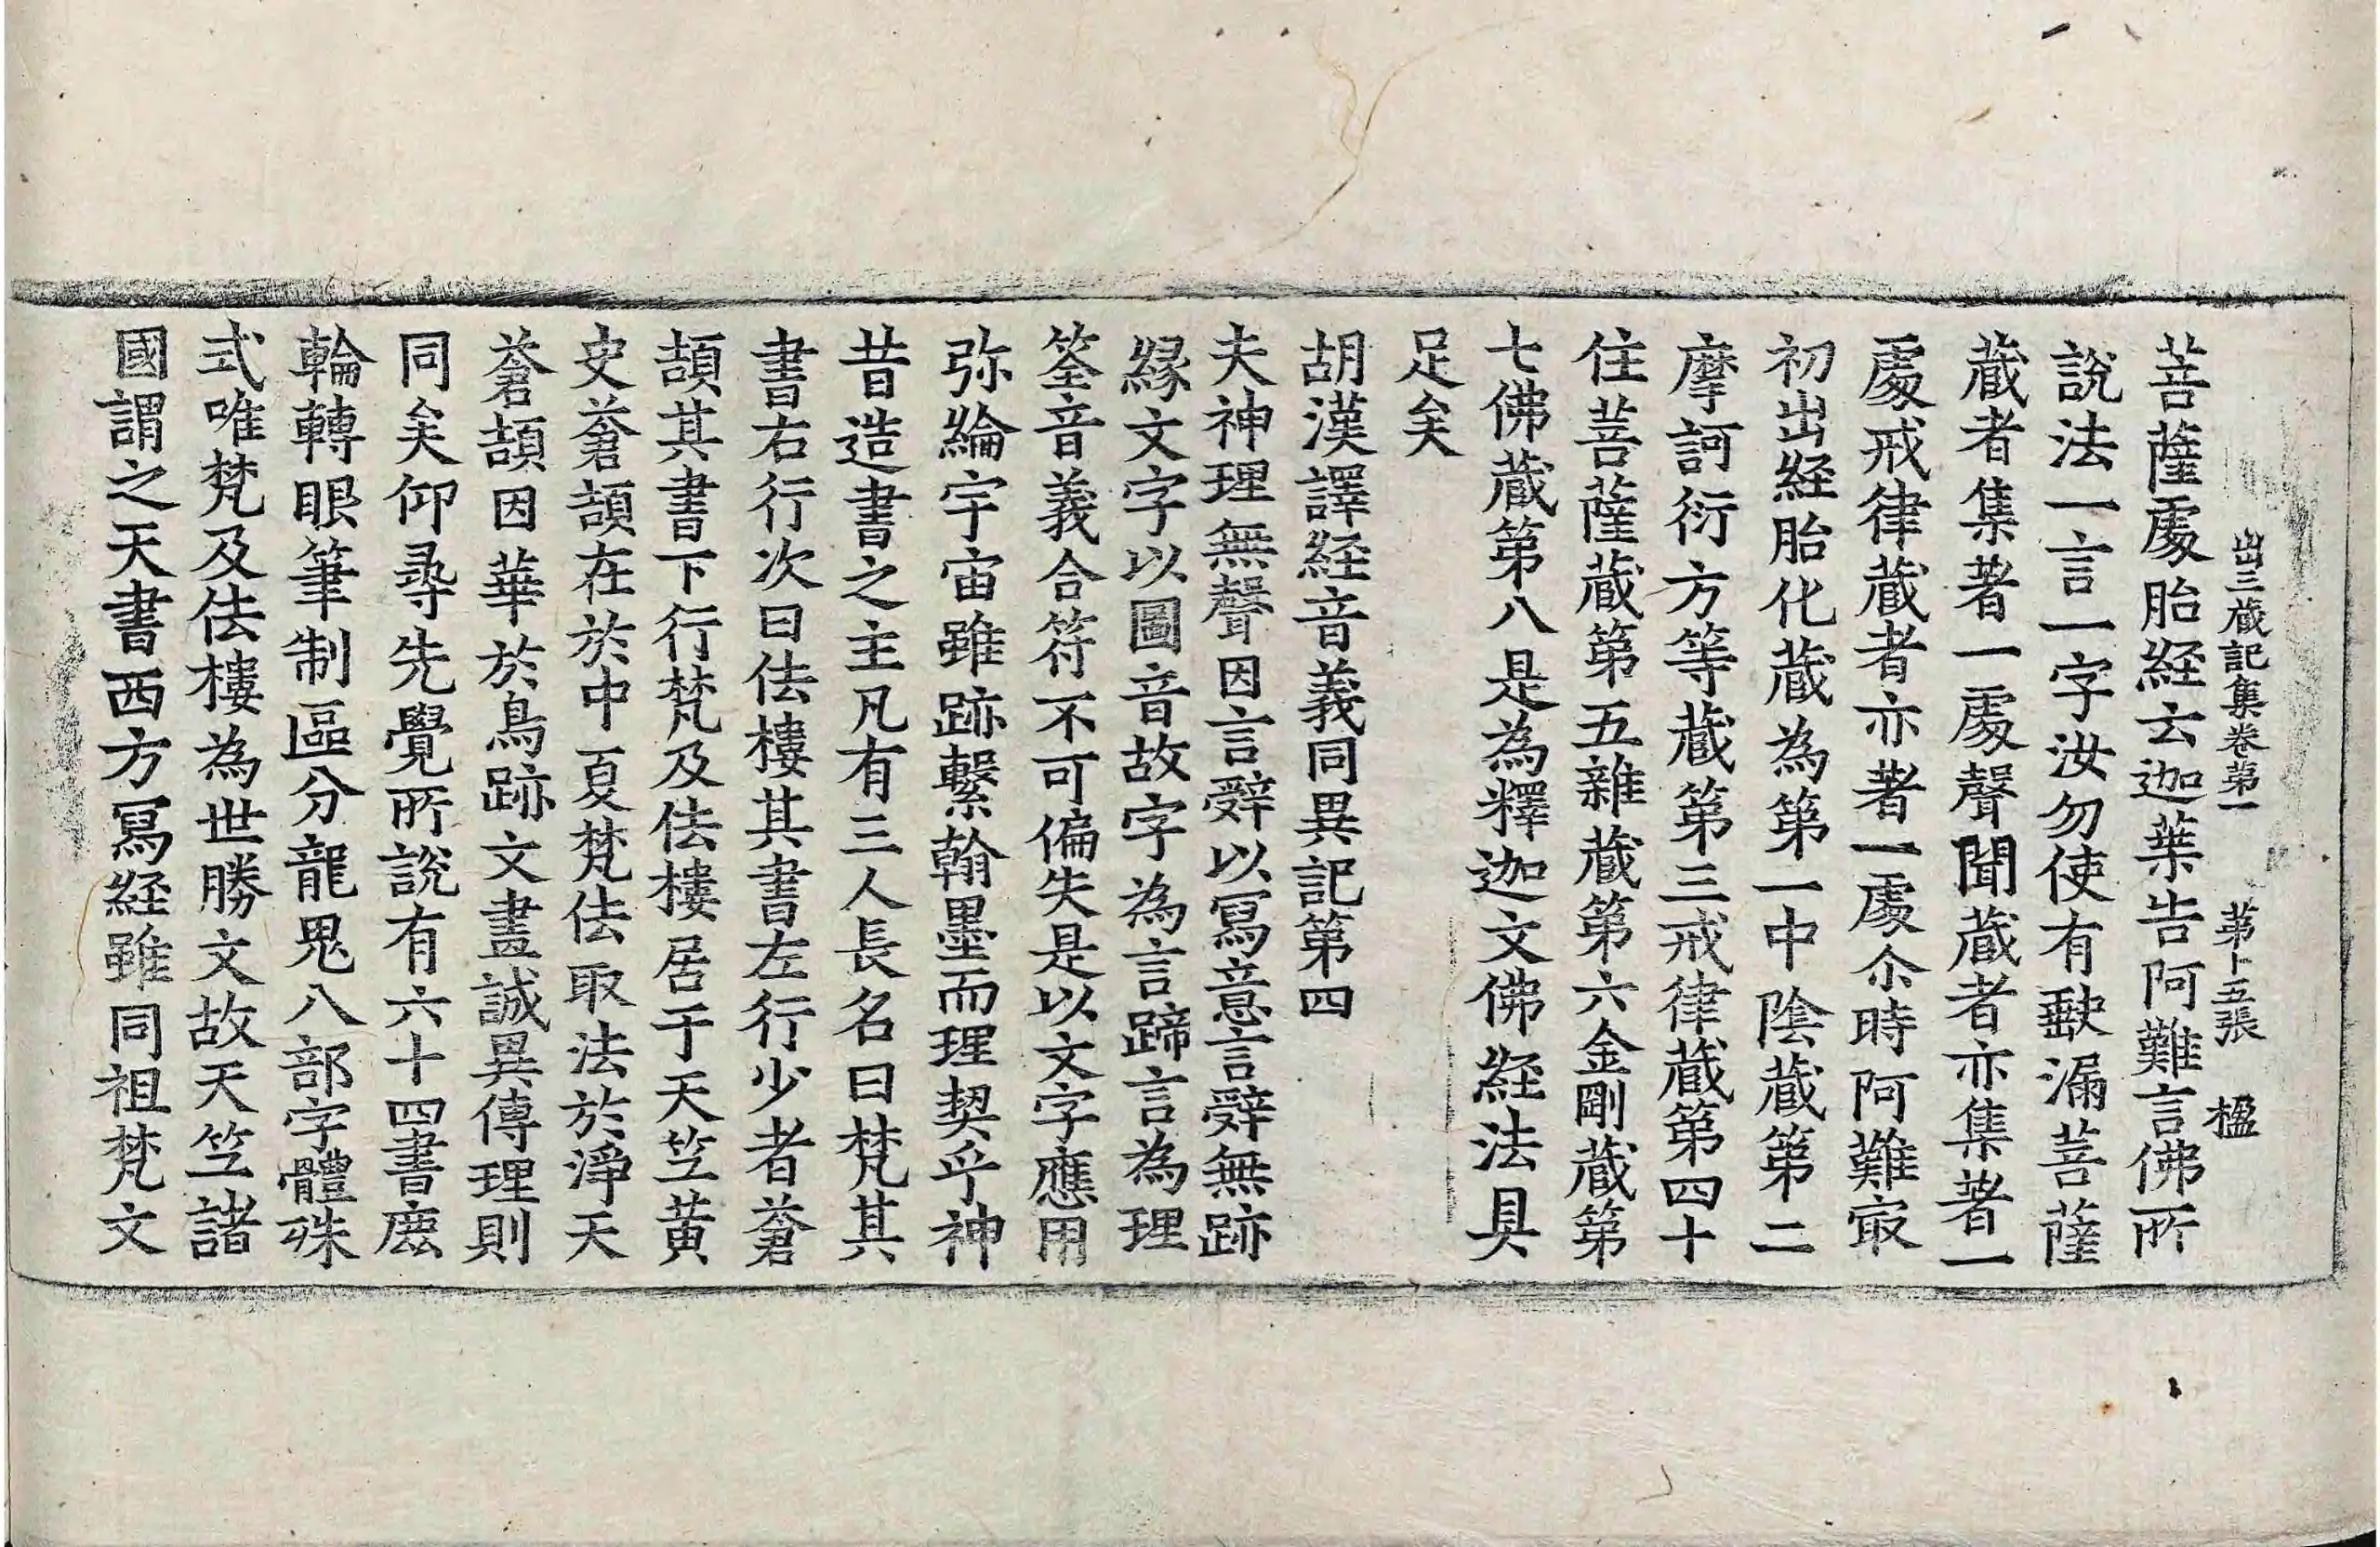 出三蔵記集卷第一 第十五張 楹
菩薩處胎経云迦葉告阿難言佛所
說法一言一字汝勿使有缺漏菩薩
蔵者集著一處聲聞蔵者亦集著一
處戒律蔵者亦著一處尒時阿難㝡
初出経胎化蔵為第一中陰蔵第二
摩訶衍方等蔵第三戒律蔵第四十
住菩薩蔵第五雜蔵第六金剛蔵第
七佛蔵第八是為釋迦文佛経法具
足矣
胡漢譯経音義同異記第四
夫神理無聲因言辝以寫意言辝無跡
縁文字以圖音故字為言蹄言為理
筌音義合符不可偏失是以文字應用
弥綸宇宙雖跡繫翰墨而理契乎神
昔造書之主凡有三人長名曰梵其
書右行次曰佉樓其書左行少者蒼
頡其書下行梵及佉樓居于天竺黄
史蒼頡在於中夏梵佉取法於淨天
蒼頡因華於鳥跡文畫誠異傳理則
同矣仰尋先覺所說有六十四書鹿
輪轉眼筆制區分龍鬼八部字體殊
式唯梵及佉樓為世勝文故天竺諸
國謂之天書西方寫経雖同祖梵文